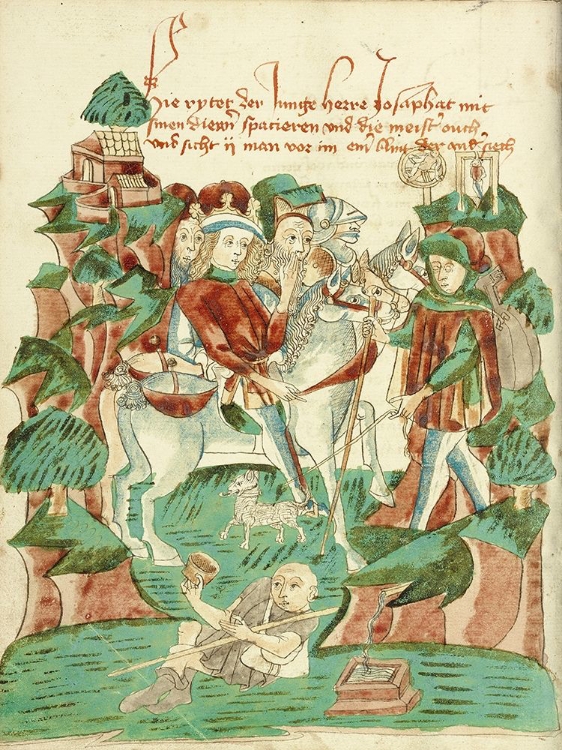 Hie rytet der Junge herre Josaphat mit
sinen dienern spatzieren vnd die meist ouch
vnd sicht ij man vor im ein der vnd siech